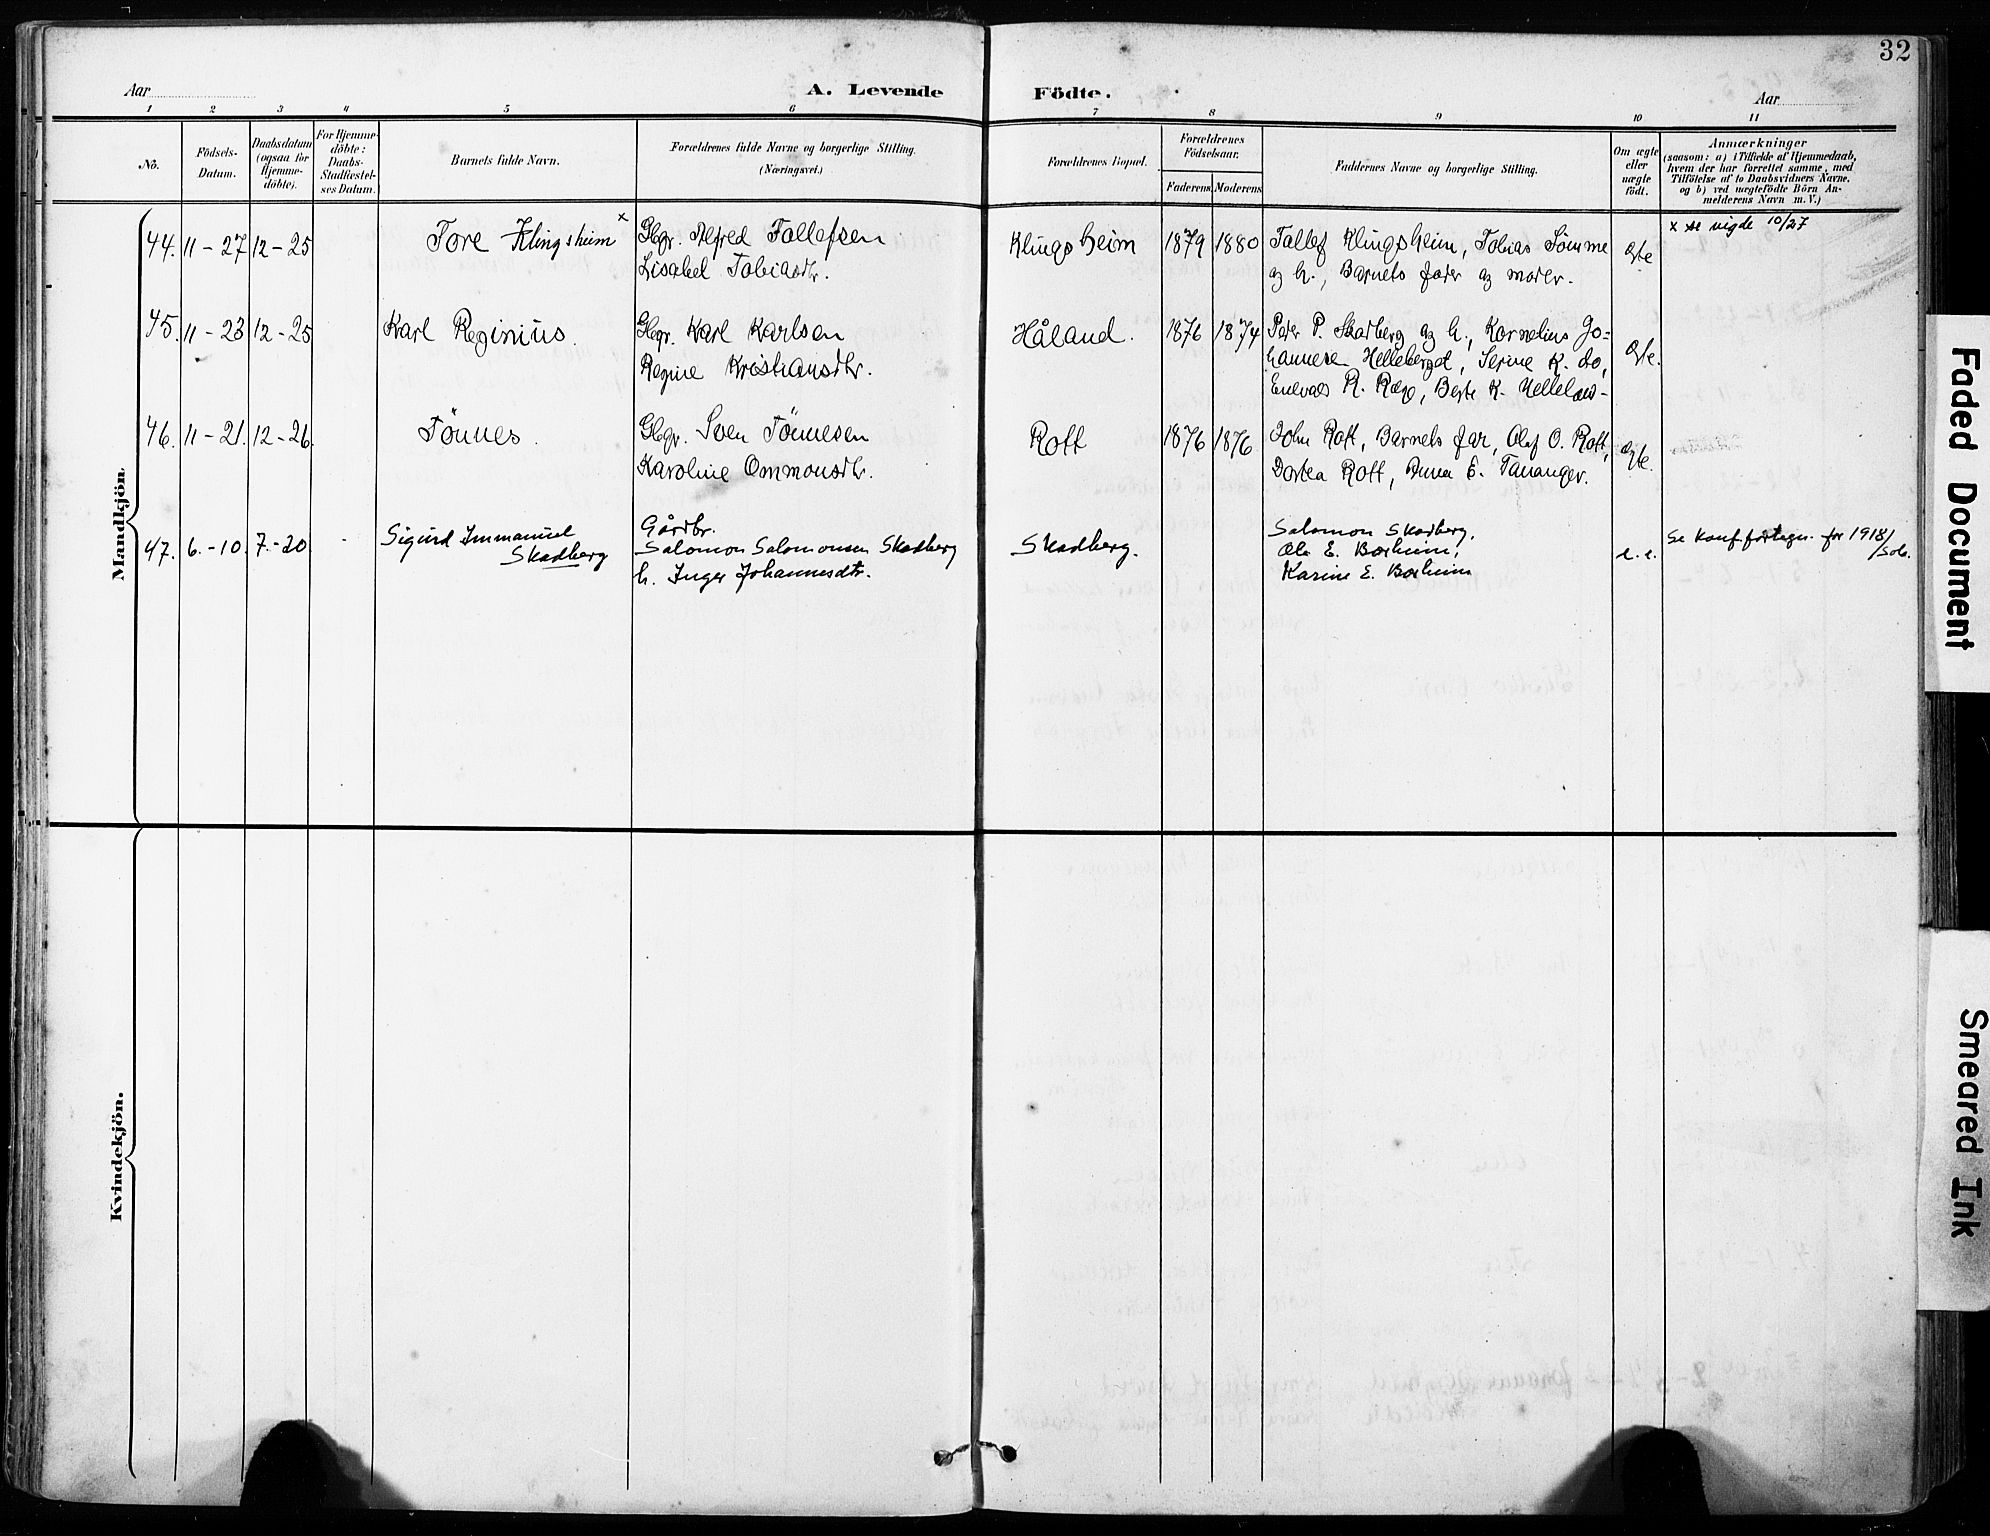 32
Aar
A. Levende Födte.
Aar
1 2 3 4 5 6 7 8 9 10 11
No.
Födsels-
Datum.
Daabsdatum
(ogsaa for
Hjemme-
döbte).
For Hjemme-
döbte:
Daabs-
Stadfæstel-
ses Datum.
Barnets fulde Navn.
Forældrenes fulde Navne og borgerlige Stilling.
(Næringsvei.)
Forældrenes Bopæl.
Forældrenes
Födselsaar.
Faderens Moderens
Faddernes Navne og borgerlige Stilling.
Om ægte
eller
uægte
födt.
Anmærkninger
(saasom: a) i Tilfælde af Hjemmedaab,
hvem der har forrettet samme, med
Tilföielse af to Daabsvidners Navne,
og b) ved uægtefödte Börn An-
melderens Navn m. V.)
Mandkjön.
44. 11-27 12-25 Tore Klingsheim x
Gbgr. Alfred Tollefsen
Lisabel Tobiasdtr.
Klingsheim 1879 1880
Tallef Klingsheim, Tobias Sömme
og h., Barnets fader og moder.
Ægte
x se vigde 10/27
45. 11-23 12-25 Karl Reginius.
Gbgr. Karl Karlsen
Regine Kristiansdtr.
Håland. 1876 1874
Peder P. Skadberg og h., Kornelius Jo=
hannesen Helleberget, Serine K. do,
Enevald R. Ræge, Berte K. Helleland-
Ægte.
46. 11-21. 12-26. Tönnes.
Gbgr. Sven Tönnesen
Karoline Ommonsdtr.
Rott 1876 1876
John Rott, Barnets far, Olaf O. Rott,
Dortea Rott, Anna E. Tananger.
Ægte.
47. 6.-10. 7.-20 - Sigurd Immanuel
Skadberg
Gårdbr.
Salomon Salomonsen Skadberg
h. Inger Johannesdtr.
Skadberg.
Salomon Skadberg,
Ole E. Borheim,
Karine E. Borheim
e. e.
Se konf.fortegn. for 1918/
/Sola.
Kvindekjön.
Faded Document
Smeared Ink